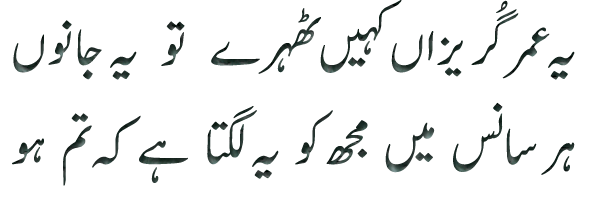 یہ عمر گُریزاں کہیں ٹھہرے تو یہ جانوں
ہر سانس میں مجھ کو یہ لگتا ہے کہ تم ہو